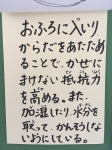 おふろに入いり
からだをあたため
ることで、かぜに
まけない抵抗力
を高める。また、
加湿したり、水分を
取って、かんそうしな
いようにしている。